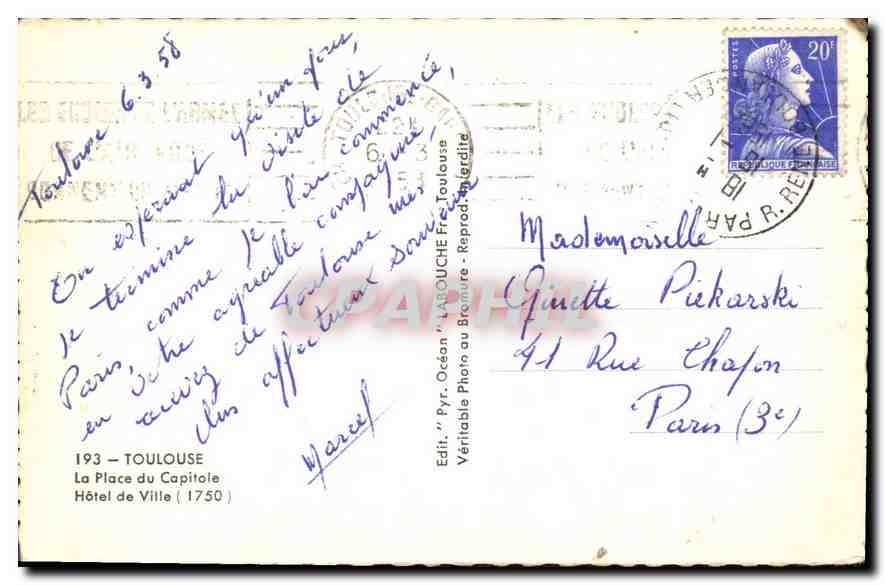 Toulouse 6.3.58
En espérant qu'un jour,
je termine la visite de
Paris, comme je l'ai commencé,
en votre agréable compagnie,
recevez de Toulouse mes
plus affectueux souvenirs
Marcel
193 — TOULOUSE
La Place du Capitole
Hôtel de Ville ( 1750 )
Edit. " Pyr. Océan " LABOUCHE Frs Toulouse
Véritable Photo au Bromure - Reprod. Interdite
POSTES
20F
REPUBLIQUE FRANÇAISE
PAR R. RENE
6 3
Mademoiselle
Ginette Piekarski
41 Rue Chapon
Paris (3e)
CPAPHIL